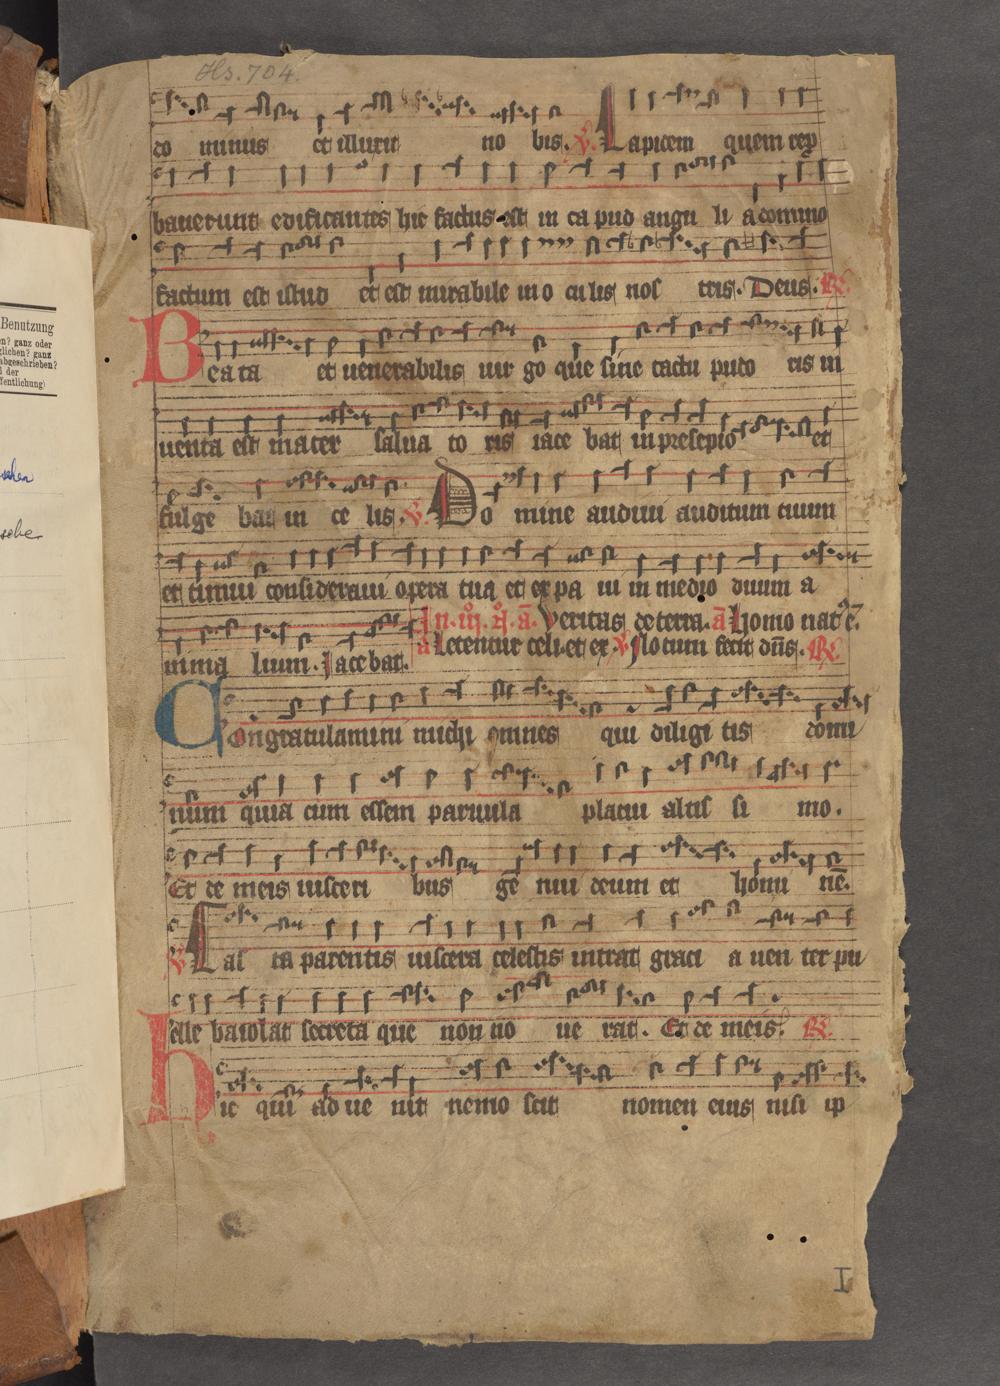 Hs. 704.
do minus et illuxit no bis. V. Lapidem quem rep
baverunt edificantes hic factus est in ca pud angu li a domino
factum est istud et est mirabile in o culis nos tris. Deus. R.
Beata et venerabilis vir go que sine tactu pudo ris in
venta est mater salva to ris iace bat in presepio et
fulge bat in ce lis. V. Do mine audivi auditum tuum
et timui consideravi opera tua et ex pa vi in medio duum a
In. III. . a. Veritas de terra. a Homo nat
nima lium. Iacebat. a Letentur celi. et ex. V. Notum fecit dns. R.
Congratulamini michi omnes qui diligi tis domi
num quia cum essem parvula placui altis si mo.
Et de meis visceri bus ge nui deum et homi nē.
V. Cas ta parentis viscera celestis intrat graci a ven ter pu
elle baiolat secreta que non no ve rat. Et de meis. R.
Hic qui ad ve nit nemo scit nomen eius nisi ip
I
Benutzung
n? ganz oder
glichen? ganz
abgeschrieben?
d der
fentlichung)